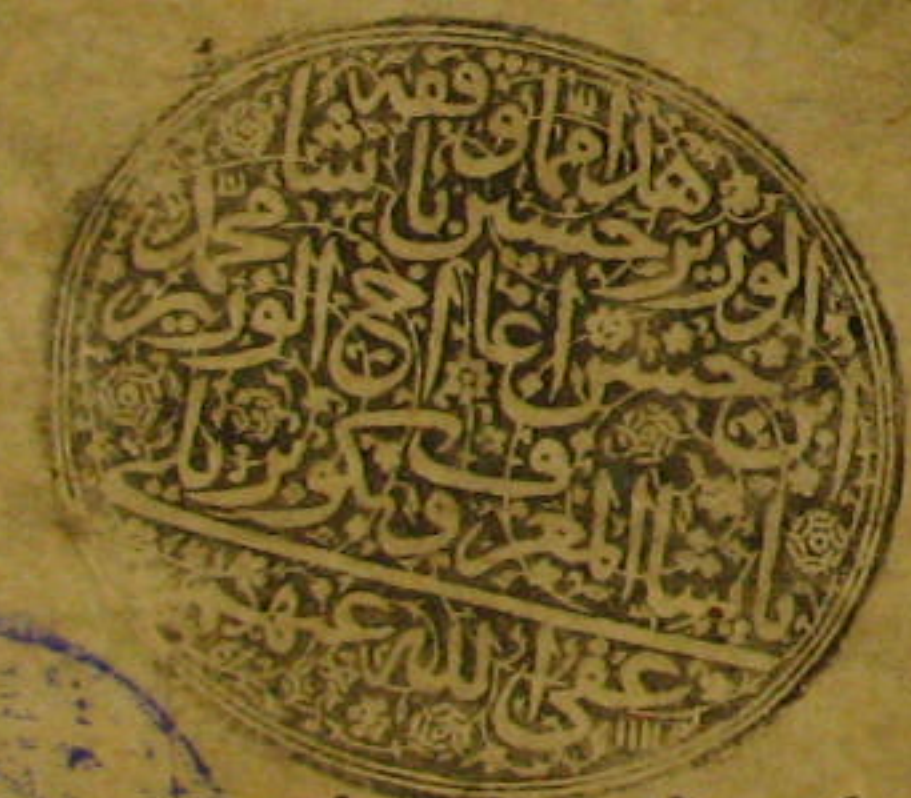 هذا مما وقفه
الوزير حسين باشا
ابن حسن اغا اخ الوزير محمد
باشا المعروف بكوپريلى
عفى الله عنهم